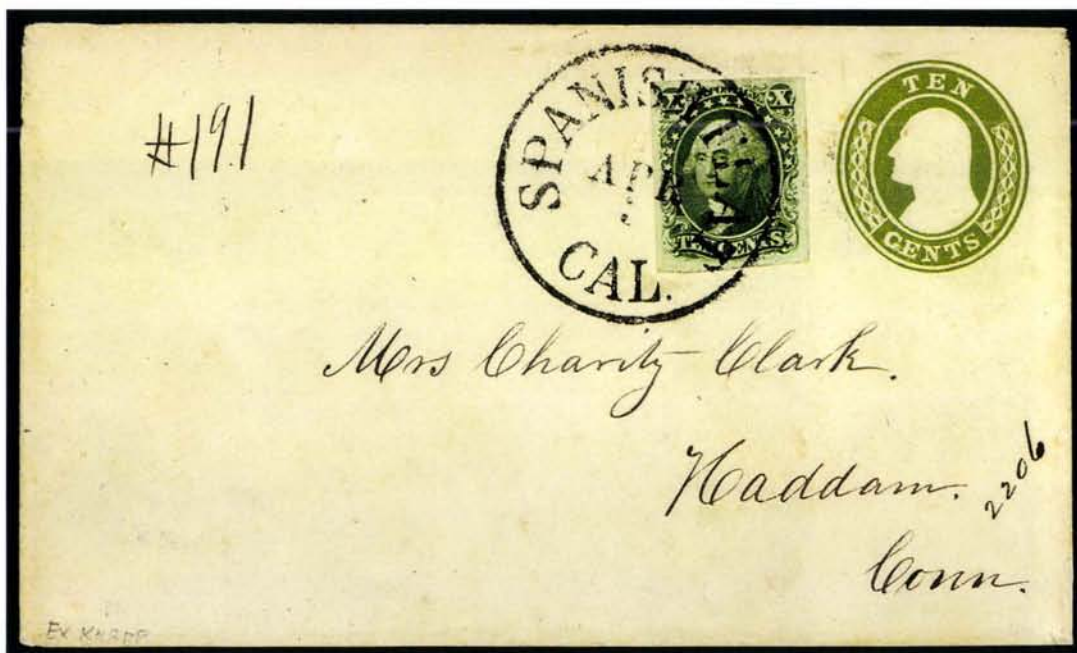 #191
SPANISH FLAT
APR
CAL.
X X
TEN CENTS
TEN
CENTS
Mrs Charity Clark.
Haddam.
Conn.
2206
Ex KNAPP